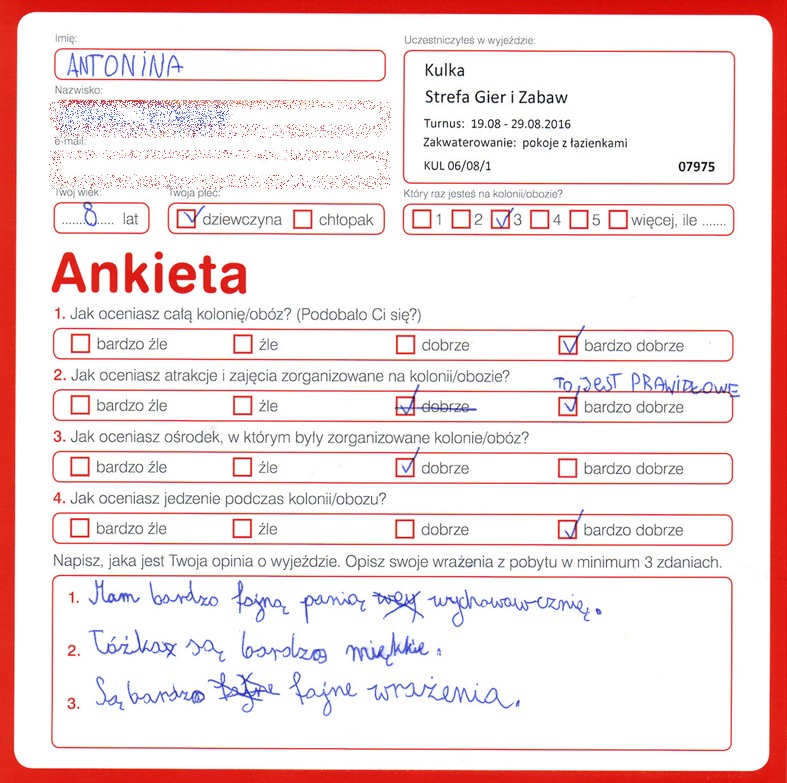 Imię:
ANTONINA
Nazwisko:
e-mail:
Uczestniczyłeś w wyjeździe:
Kulka
Strefa Gier i Zabaw
Turnus: 19.08 - 29.08.2016
Zakwaterowanie: pokoje z łazienkami
KUL 06/08/1 07975
Twój wiek:
......8...... lat
Twoja płeć:
dziewczyna chłopak
Który raz jesteś na kolonii/obozie?
1 2 3 4 5 więcej, ile .......
Ankieta
1. Jak oceniasz całą kolonię/obóz? (Podobało Ci się?)
bardzo źle źle dobrze bardzo dobrze
2. Jak oceniasz atrakcje i zajęcia zorganizowane na kolonii/obozie?
TO JEST PRAWIDŁOWE
bardzo źle źle dobrze bardzo dobrze
3. Jak oceniasz ośrodek, w którym były zorganizowane kolonie/obóz?
bardzo źle źle dobrze bardzo dobrze
4. Jak oceniasz jedzenie podczas kolonii/obozu?
bardzo źle źle dobrze bardzo dobrze
Napisz, jaka jest Twoja opinia o wyjeździe. Opisz swoje wrażenia z pobytu w minimum 3 zdaniach.
1. Mam bardzo fajną panią wychowawcznię.
2. Łóżka są bardzo miękkie.
3. Są bardzo fajne wrażenia.